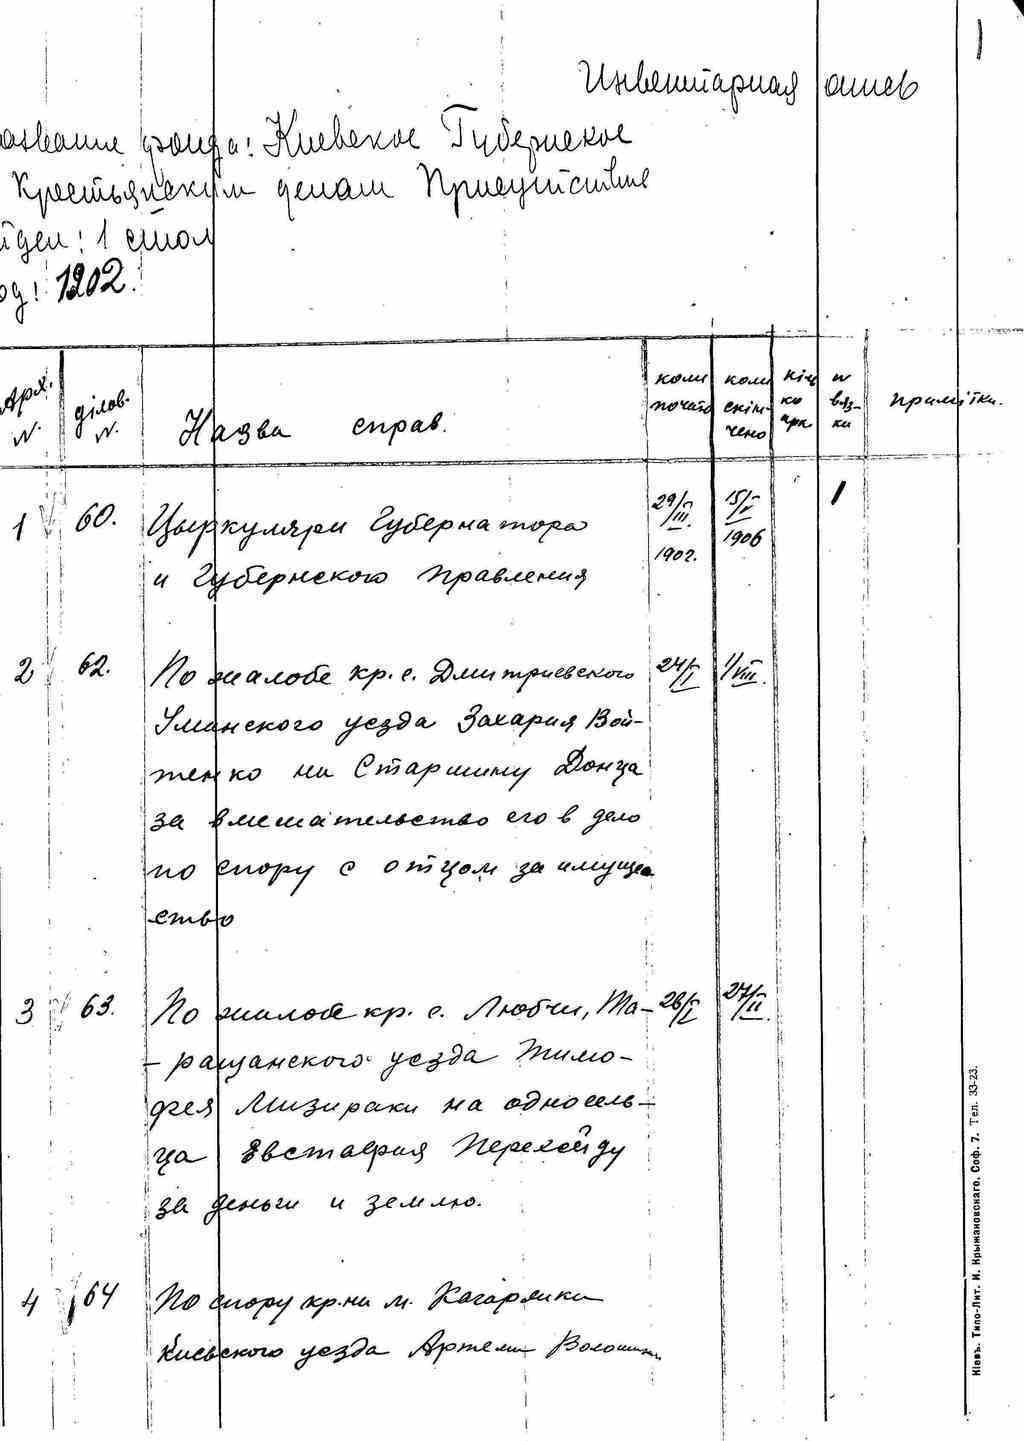 1
Инвентарная опись
азвание фонда: Киевское Губернское
Крестьянским делам Присутствие
тдел: 1 стол
од: 1902.
Арх. N.
ділов. N.
Назва справ.
коли почато
коли скін-чено
кіль ко арк
N вяз-ки
примітки.
1 60. Цыркуляри Губернатора 29/III. 1902. 15/V 1906 1
и Губернского Правления
2 62. По жалобе кр. с. Дмитриевского 24/I 1/VIII.
Уманского уезда Захария Вой-
тенко на Старшину Донца
за вмешательство его в дело
по спору с отцом за имуще
ство
3 63. По жалобе кр. с. Любчи, Та- 28/I 27/II.
- ращанского уезда Тимо-
фея Мизираки на односель-
ца Евстафия Перехейду
за деньги и землю.
4 64 По спору кр-на м. Кагарлика
Киевского уезда Артема Волошина
Кіевъ. Типо-Лит. И. Крыжановскаго. Соф. 7. Тел. 33-23.